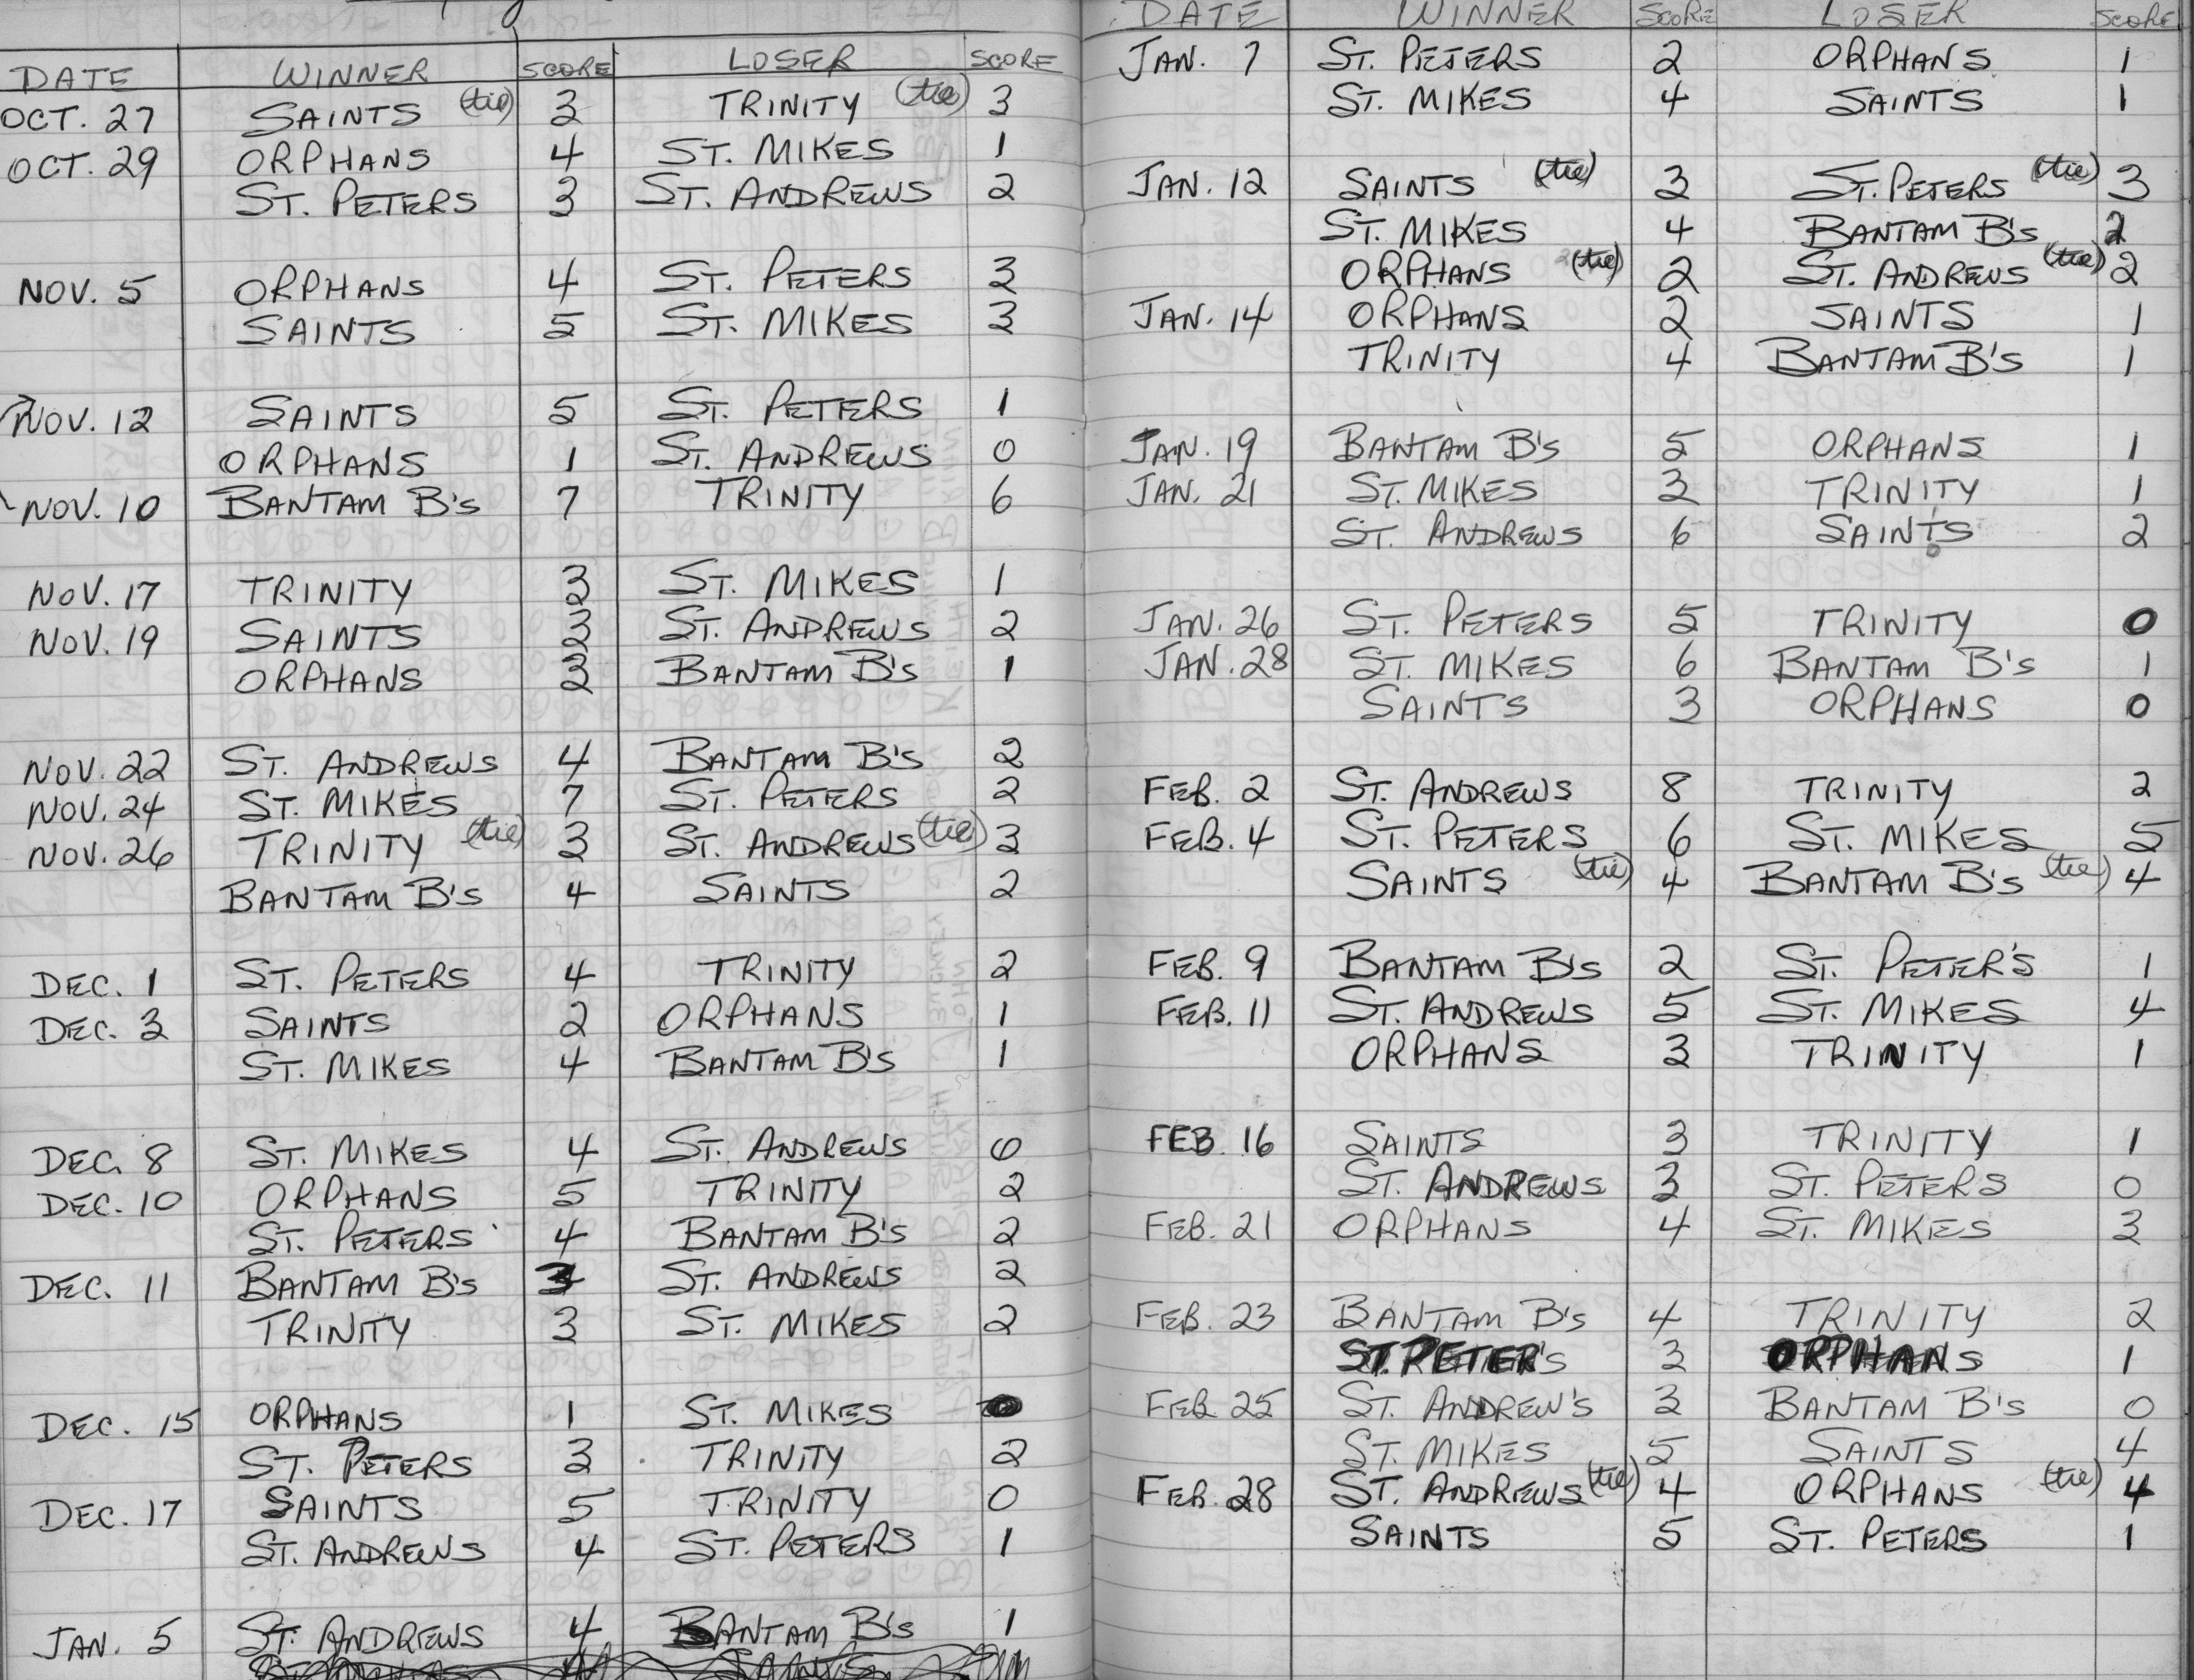 DATE WINNER SCORE LOSER SCORE
OCT. 27 SAINTS (tie) 3 TRINITY (tie) 3
OCT. 29 ORPHANS 4 ST. MIKES 1
ST. PETERS 3 ST. ANDREWS 2
NOV. 5 ORPHANS 4 ST. PETERS 3
SAINTS 5 ST. MIKES 3
NOV. 12 SAINTS 5 ST. PETERS 1
ORPHANS 1 ST. ANDREWS 0
NOV. 10 BANTAM B's 7 TRINITY 6
NOV. 17 TRINITY 3 ST. MIKES 1
NOV. 19 SAINTS 3 ST. ANDREWS 2
ORPHANS 3 BANTAM B's 1
NOV. 22 ST. ANDREWS 4 BANTAM B's 2
NOV. 24 ST. MIKES 7 ST. PETERS 2
NOV. 26 TRINITY (tie) 3 ST. ANDREWS (tie) 3
BANTAM B's 4 SAINTS 2
DEC. 1 ST. PETERS 4 TRINITY 2
DEC. 3 SAINTS 2 ORPHANS 1
ST. MIKES 4 BANTAM B's 1
DEC. 8 ST. MIKES 4 ST. ANDREWS 0
DEC. 10 ORPHANS 5 TRINITY 2
ST. PETERS 4 BANTAM B's 2
DEC. 11 BANTAM B's 3 ST. ANDREWS 2
TRINITY 3 ST. MIKES 2
DEC. 15 ORPHANS 1 ST. MIKES 0
ST. PETERS 3 TRINITY 2
DEC. 17 SAINTS 5 TRINITY 0
ST. ANDREWS 4 ST. PETERS 1
JAN. 5 ST. ANDREWS 4 BANTAM B's 1
DATE WINNER SCORE LOSER SCORE
JAN. 7 ST. PETERS 2 ORPHANS 1
ST. MIKES 4 SAINTS 1
JAN. 12 SAINTS (tie) 3 ST. PETERS (tie) 3
ST. MIKES 4 BANTAM B's 2
ORPHANS (tie) 2 ST. ANDREWS (tie) 2
JAN. 14 ORPHANS 2 SAINTS 1
TRINITY 4 BANTAM B's 1
JAN. 19 BANTAM B's 5 ORPHANS 1
JAN. 21 ST. MIKES 3 TRINITY 1
ST. ANDREWS 6 SAINTS 2
JAN. 26 ST. PETERS 5 TRINITY 0
JAN. 28 ST. MIKES 6 BANTAM B's 1
SAINTS 3 ORPHANS 0
FEB. 2 ST. ANDREWS 8 TRINITY 2
FEB. 4 ST. PETERS 6 ST. MIKES 5
SAINTS (tie) 4 BANTAM B's (tie) 4
FEB. 9 BANTAM B's 2 ST. PETER'S 1
FEB. 11 ST. ANDREWS 5 ST. MIKES 4
ORPHANS 3 TRINITY 1
FEB. 16 SAINTS 3 TRINITY 1
ST. ANDREWS 3 ST. PETERS 0
FEB. 21 ORPHANS 4 ST. MIKES 3
FEB. 23 BANTAM B's 4 TRINITY 2
ST. PETER's 3 ORPHANS 1
FEB. 25 ST. ANDREW'S 3 BANTAM B's 0
ST. MIKES 5 SAINTS 4
FEB. 28 ST. ANDREWS (tie) 4 ORPHANS (tie) 4
SAINTS 5 ST. PETERS 1